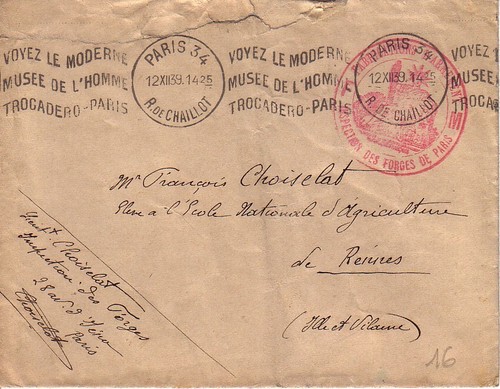 VOYEZ LE MODERNE
MUSEE DE L'HOMME
TROCADERO-PARIS
PARIS 34
12XII39. 1425
R. DE CHAILLOT
VOYEZ LE MODERNE
MUSEE DE L'HOMM
TROCADERO-PARIS
PARIS 34
12XII39. 1425
R. DE CHAILLOT
VOYEZ L
MUSEE
TROCA
INSPECTION DES FORGES DE PARIS
Mr François Choiselat
Eleve à l'Ecole Nationale d'Agriculture
de Rennes
(Ille et Vilaine)
Choiselat
Inspection des Forges
28 av. d'Iéna
Paris
Choiselat
16